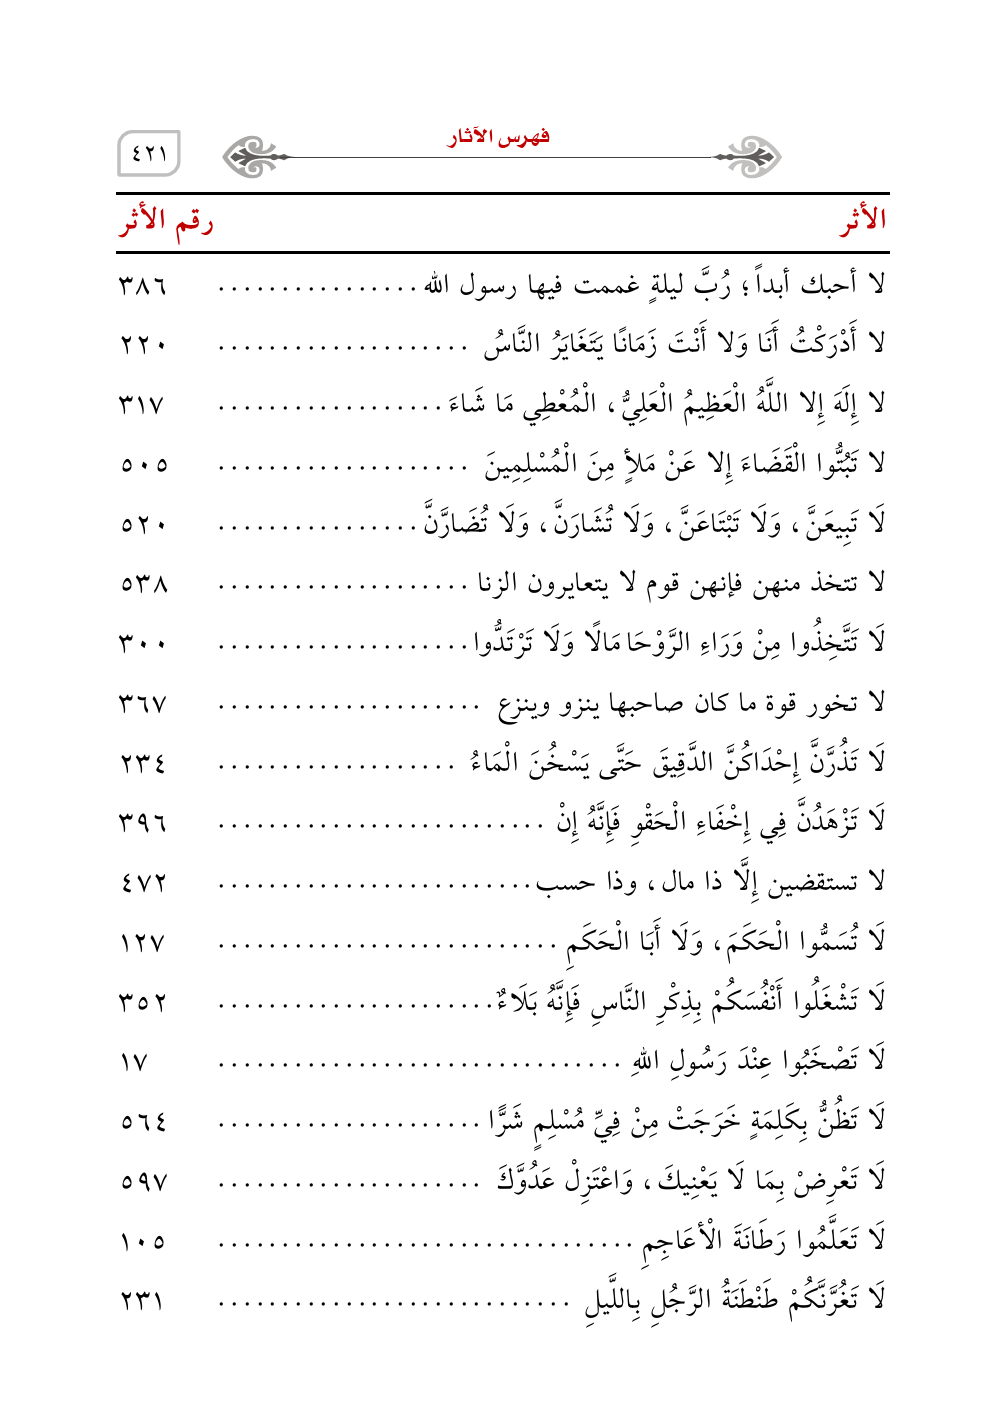 فهرس الآثار
٤٢١
الأثر رقم الأثر
لا أحبك أبداً؛ رُبَّ ليلةٍ غممت فيها رسول الله ................ ٣٨٦
لا أَدْرَكْتُ أَنَا وَلا أَنْتَ زَمَانًا يَتَغَايَرُ النَّاسُ .................... ٢٢٠
لا إِلَهَ إِلا اللَّهُ الْعَظِيمُ الْعَلِيُّ، الْمُعْطِي مَا شَاءَ .................. ٣١٧
لا تَبُتُّوا الْقَضَاءَ إِلا عَنْ مَلأٍ مِنَ الْمُسْلِمِينَ .................... ٥٠٥
لَا تَبِيعَنَّ، وَلَا تَبْتَاعَنَّ، وَلَا تُشَارَنَّ، وَلَا تُضَارَّنَّ ................ ٥٢٠
لا تتخذ منهن فإنهن قوم لا يتعايرون الزنا .................... ٥٣٨
لَا تَتَّخِذُوا مِنْ وَرَاءِ الرَّوْحَا مَالًا وَلَا تَرْتَدُّوا .................... ٣٠٠
لا تخور قوة ما كان صاحبها ينزو وينزع ..................... ٣٦٧
لَا تَذُرَّنَّ إِحْدَاكُنَّ الدَّقِيقَ حَتَّى يَسْخُنَ الْمَاءُ ................... ٢٣٤
لَا تَزْهَدُنَّ فِي إِخْفَاءِ الْحَقْوِ فَإِنَّهُ إِنْ .......................... ٣٩٦
لا تستقضين إِلَّا ذا مال، وذا حسب ......................... ٤٧٢
لَا تُسَمُّوا الْحَكَمَ، وَلَا أَبَا الْحَكَمِ ........................... ١٢٧
لَا تَشْغَلُوا أَنْفُسَكُمْ بِذِكْرِ النَّاسِ فَإِنَّهُ بَلَاءٌ ...................... ٣٥٢
لَا تَصْخَبُوا عِنْدَ رَسُولِ اللهِ ................................ ١٧
لَا تَظُنُّ بِكَلِمَةٍ خَرَجَتْ مِنْ فِيِّ مُسْلِمٍ شَرًّا ..................... ٥٦٤
لَا تَعْرِضْ بِمَا لَا يَعْنِيكَ، وَاعْتَزِلْ عَدُوَّكَ ..................... ٥٩٧
لَا تَعَلَّمُوا رَطَانَةَ الْأعَاجِمِ ................................. ١٠٥
لَا تَغُرَّنَّكُمْ طَنْطَنَةُ الرَّجُلِ بِاللَّيلِ ............................ ٢٣١